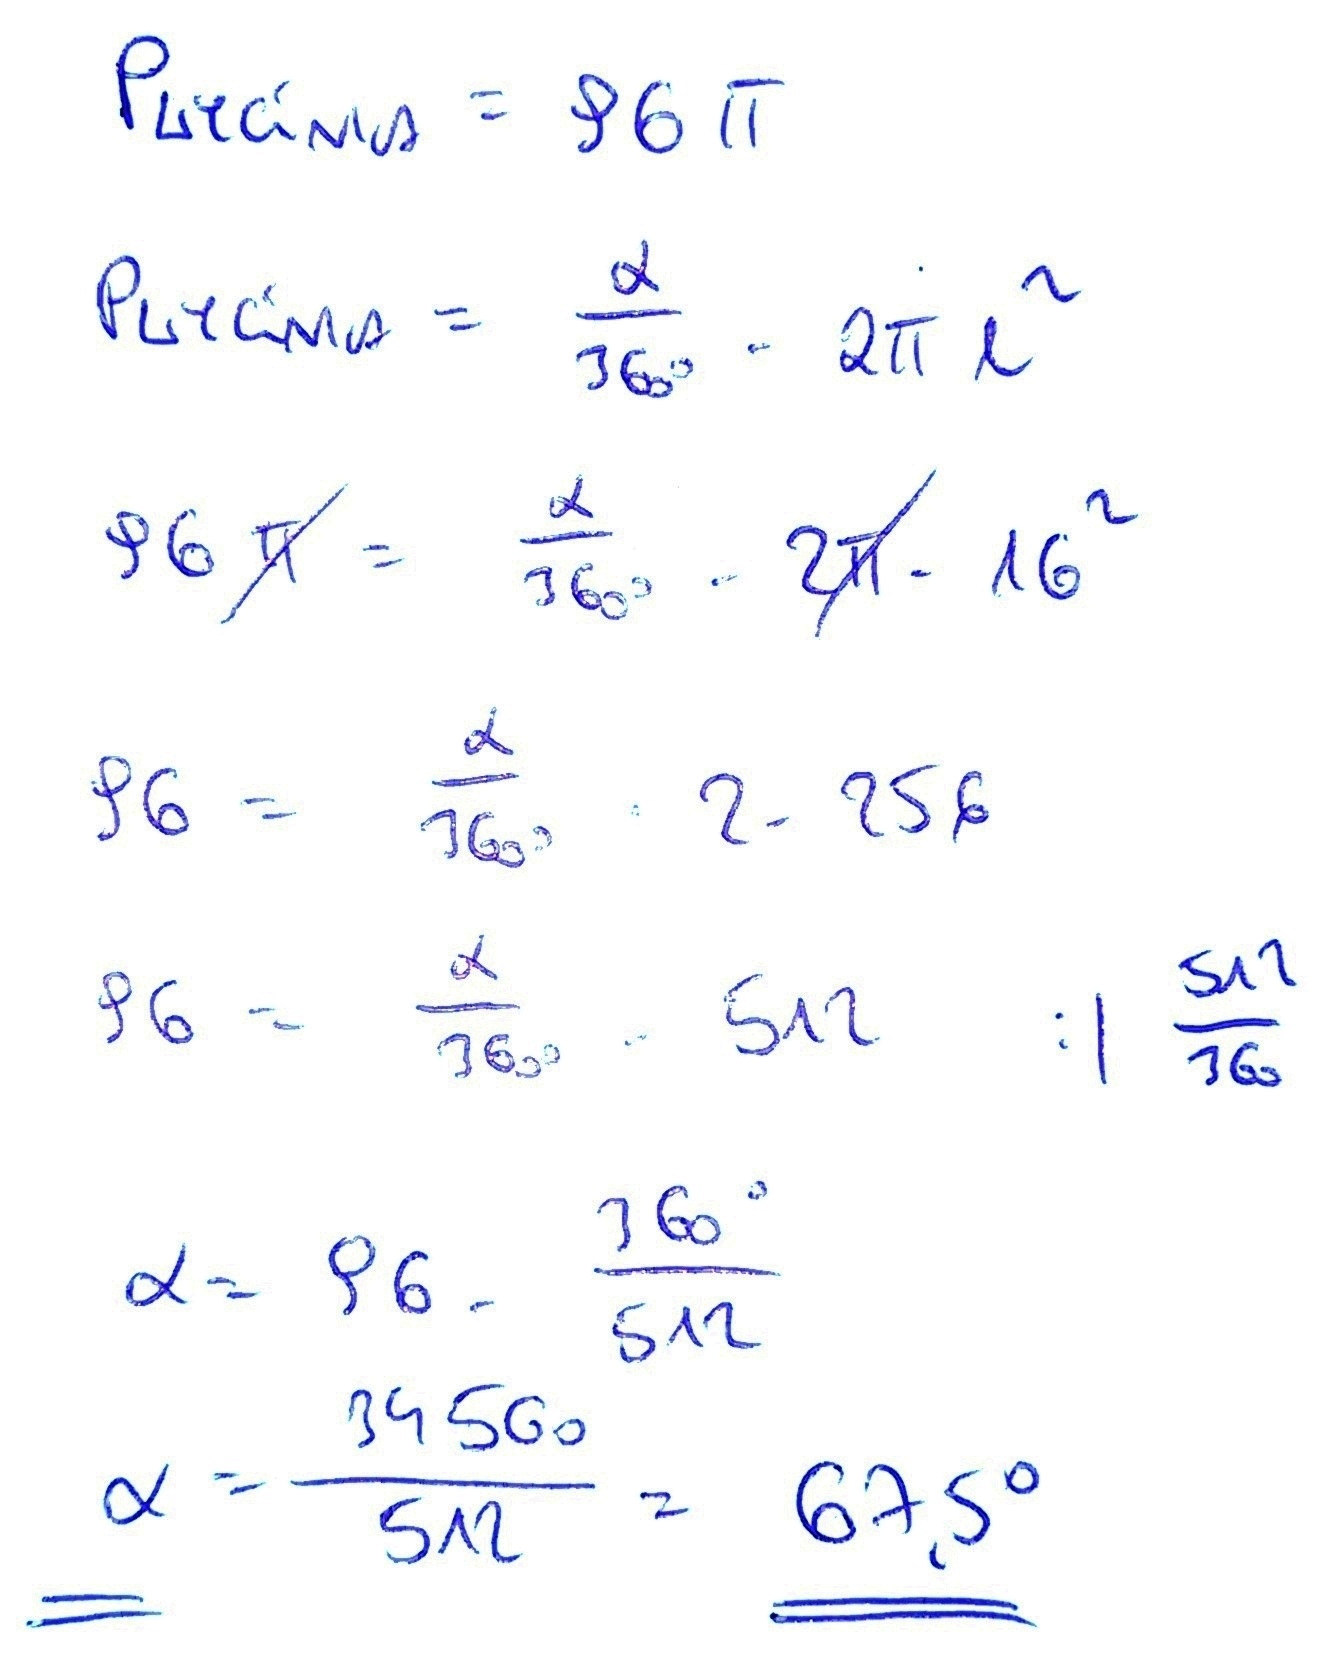 P wycinka = 96 π
P wycinka = α/360° · 2π r²
96 π = α/360° · 2π · 16²
96 = α/360° · 2 · 256
96 = α/360° · 512 :| 512/360
α = 96 · 360°/512
α = 34560/512 = 67,5°